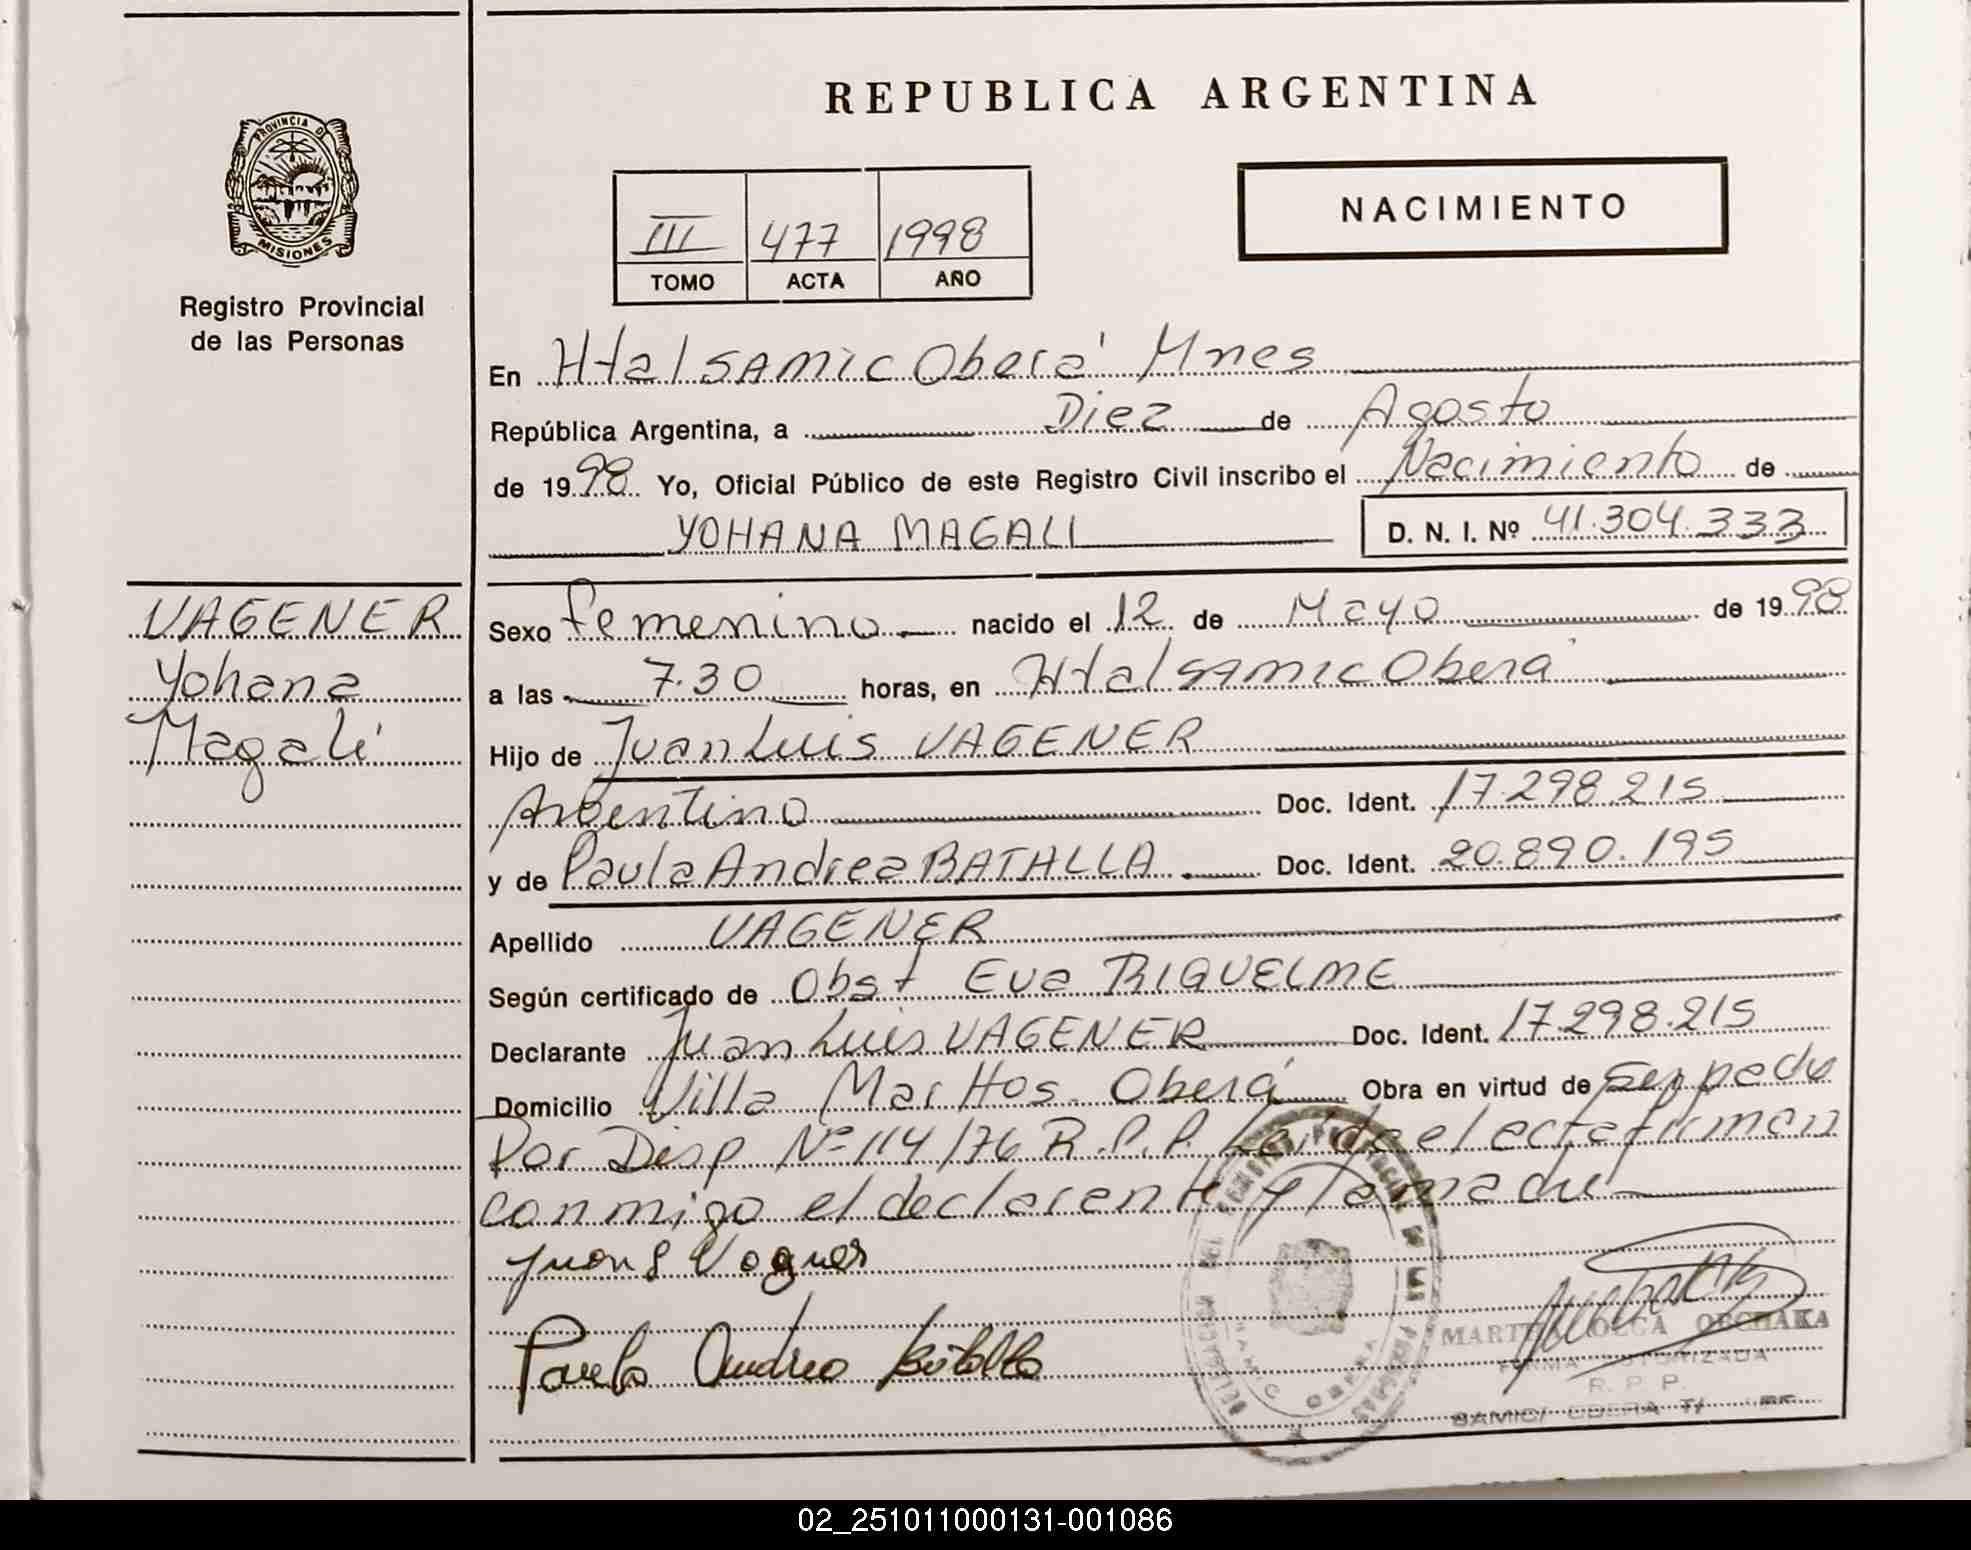 REPUBLICA ARGENTINA
PROVINCIA D
MISIONES
Registro Provincial
de las Personas
NACIMIENTO
III 477 1998
TOMO ACTA AÑO
En Htal SAMIC Oberá Mnes
República Argentina, a Diez de Agosto
de 1998 Yo, Oficial Público de este Registro Civil inscribo el Nacimiento de
YOHANA MAGALI D. N. I. Nº 41.304.333
VAGENER
Yohana
Magalí
Sexo femenino nacido el 12 de Mayo de 1998
a las 7.30 horas, en Htal SAMIC Oberá
Hijo de Juan Luis VAGENER
Argentino Doc. Ident. 17.298.215
y de Paula Andrea BATALLA Doc. Ident. 20.890.195
Apellido VAGENER
Según certificado de Obst Eva RIQUELME
Declarante Juan Luis VAGENER Doc. Ident. 17.298.215
Domicilio Villa Oberá Obra en virtud de
Por Disp Nº 114/76 R.P.P. Leída el acta firman
conmigo el declarante y la madre
Juan L Vagner
Paula Andrea Batalla
MARTHA OLGA ORCHAKA
FIRMA AUTORIZADA
R. P. P.
SAMIC/ OBERA
02_251011000131-001086